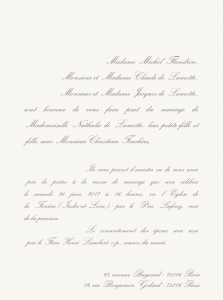 Madame Michel Flandrin,
Monsieur et Madame Claude de Lamotte,
Monsieur et Madame Jacques de Lamotte,
sont heureux de vous faire part du mariage de
Mademoiselle Nathalie de Lamotte, leur petite-fille et
fille, avec Monsieur Christian
Ils vous prient d'assister ou de vous unir
par la prière à la messe de mariage qui sera célébrée
le samedi 24 juin 2017 à 16 heures, en l'Église de
la Ferrière (Indre-et-Loire), par le Père
de la paroisse.
Le consentement des époux sera reçu
par le Père Hervé s.p., cousin du marié.
avenue 75116 Paris
18 rue Benjamin Godard - 75116 Paris